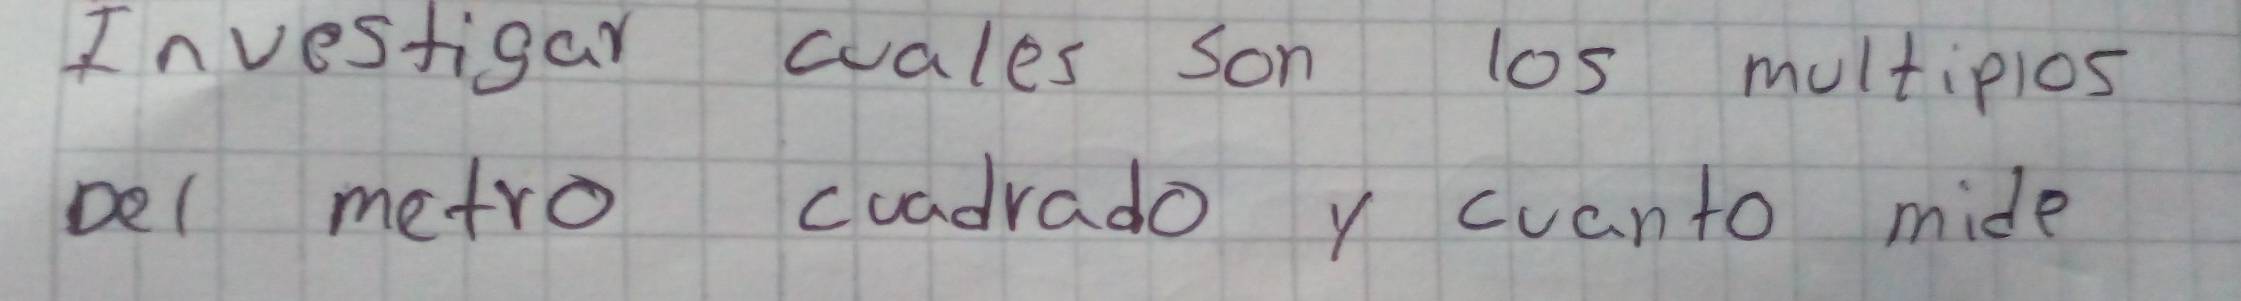 Investigar cuales son los multiplos
Del metro cuadrado y cuanto mide